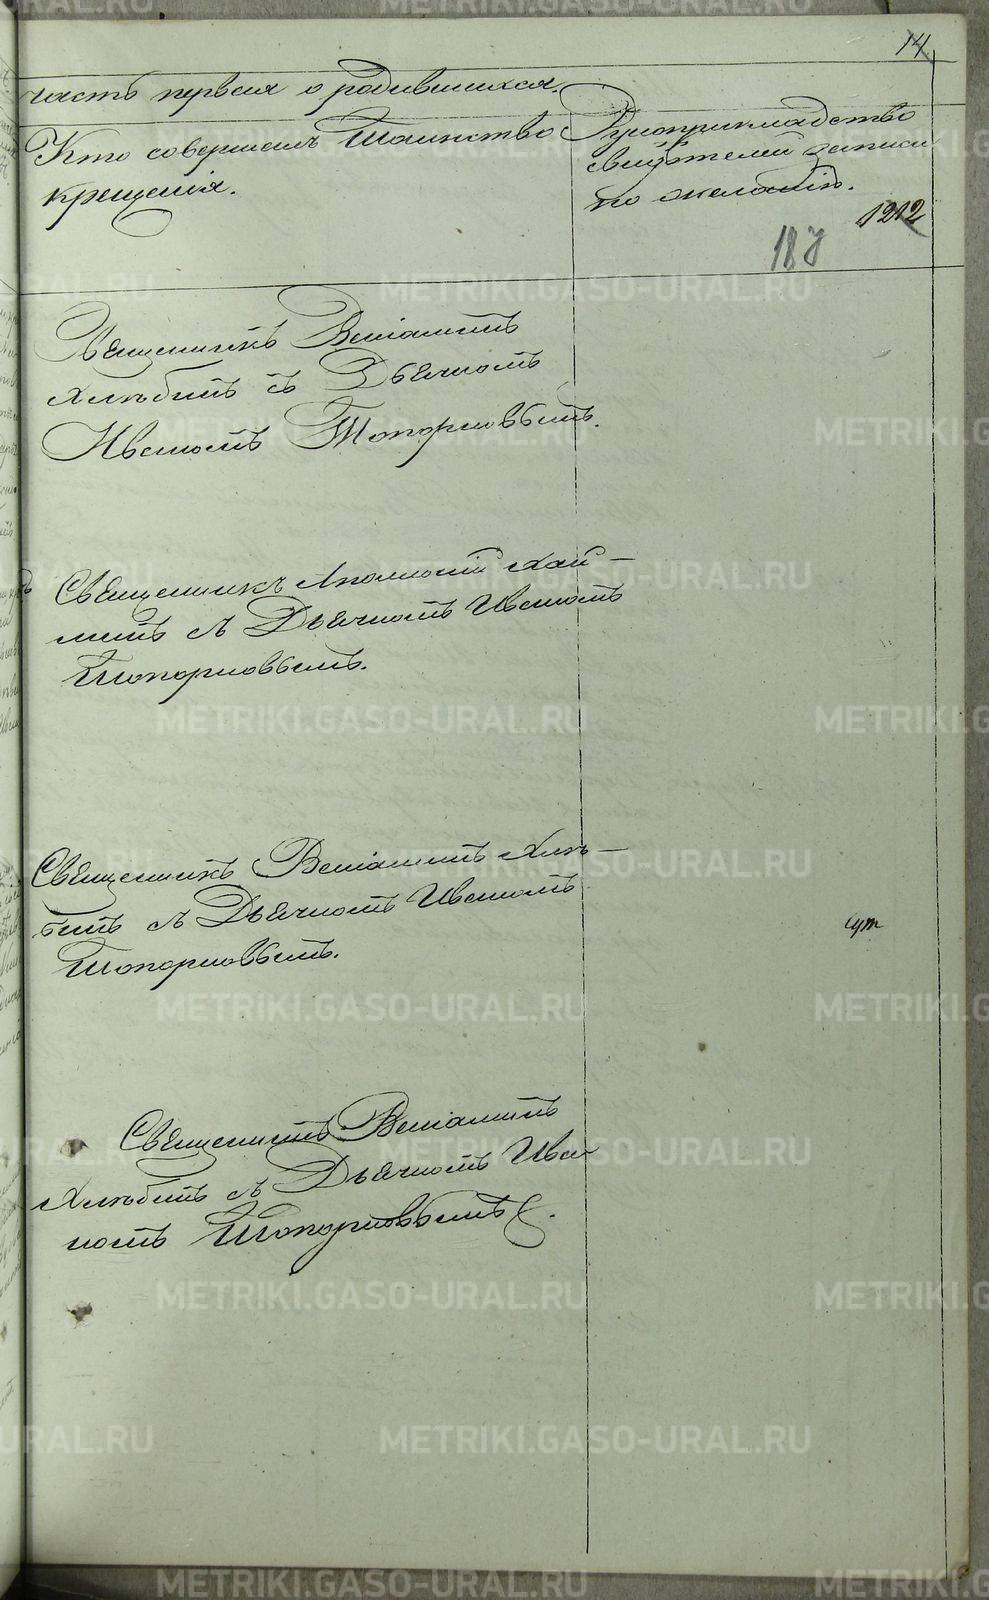 14
часть первая о родившихся.
Кто совершалъ Таинство
крещенія.
Рукоприкладство
свидѣтелей записи
по желанію.
1212
187
Священникъ Веніаминъ
Хлѣбинъ съ Дьячкомъ
Иваномъ Топорковымъ.
Священникъ Аполлоній
съ Дьячкомъ Иваномъ
Топорковымъ.
Священникъ Веніаминъ Хлѣ-
бинъ съ Дьячкомъ Иваномъ
Топорковымъ.
Священникъ Веніаминъ
Хлѣбинъ съ Дьячкомъ Ива
номъ Топорковымъ.
METRIKI.GASO-URAL.RU